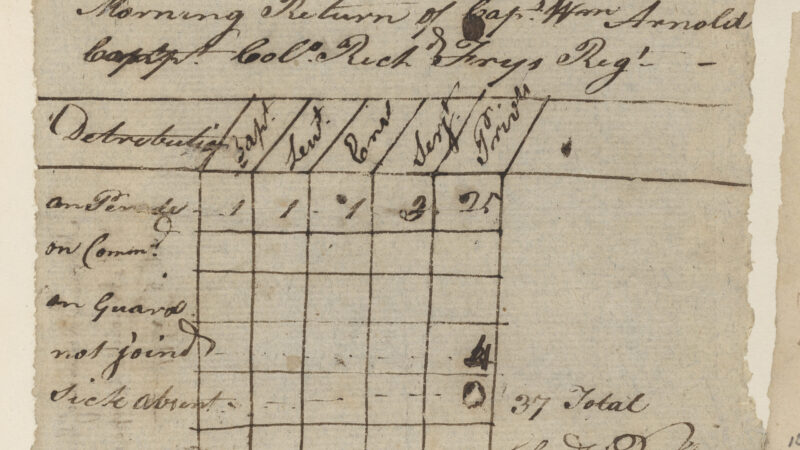 Morning Return of Capt. Wm Arnold
Compy. Colo. Richd Frys Regt —
Detributin Capt. Leut. Ens Serjt. Privts
on Perade 1 1 1 2 25
on Commd.
on Guard
not joind 4
Sick absent
37 Total